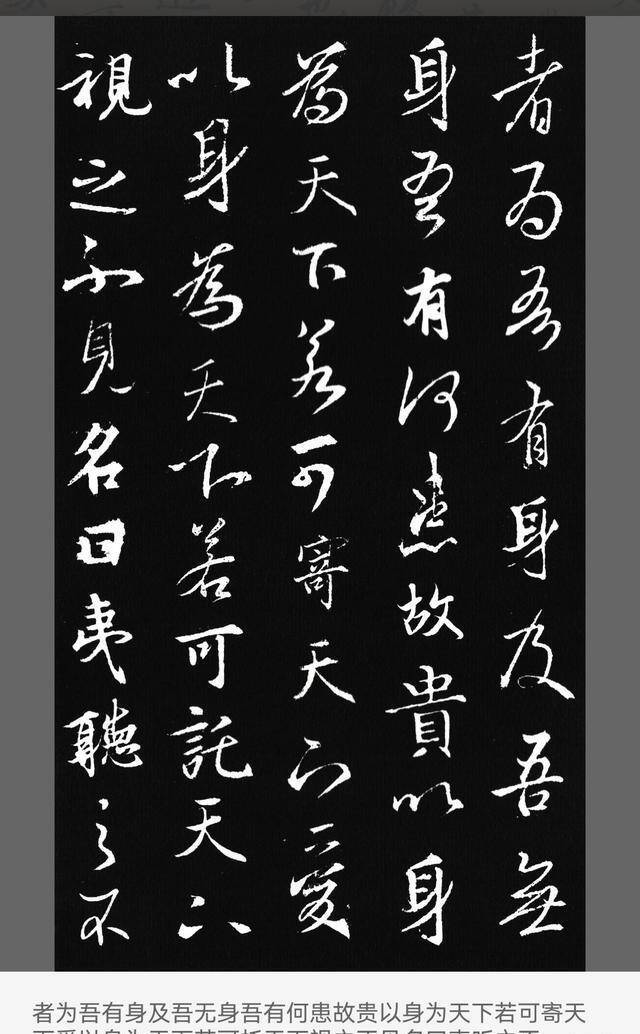 者為吾有身及吾無
身吾有何患故貴以身
為天下若可寄天下愛
以身為天下若可託天下
視之不見名曰夷聽之不
者为吾有身及吾无身吾有何患故贵以身为天下若可寄天